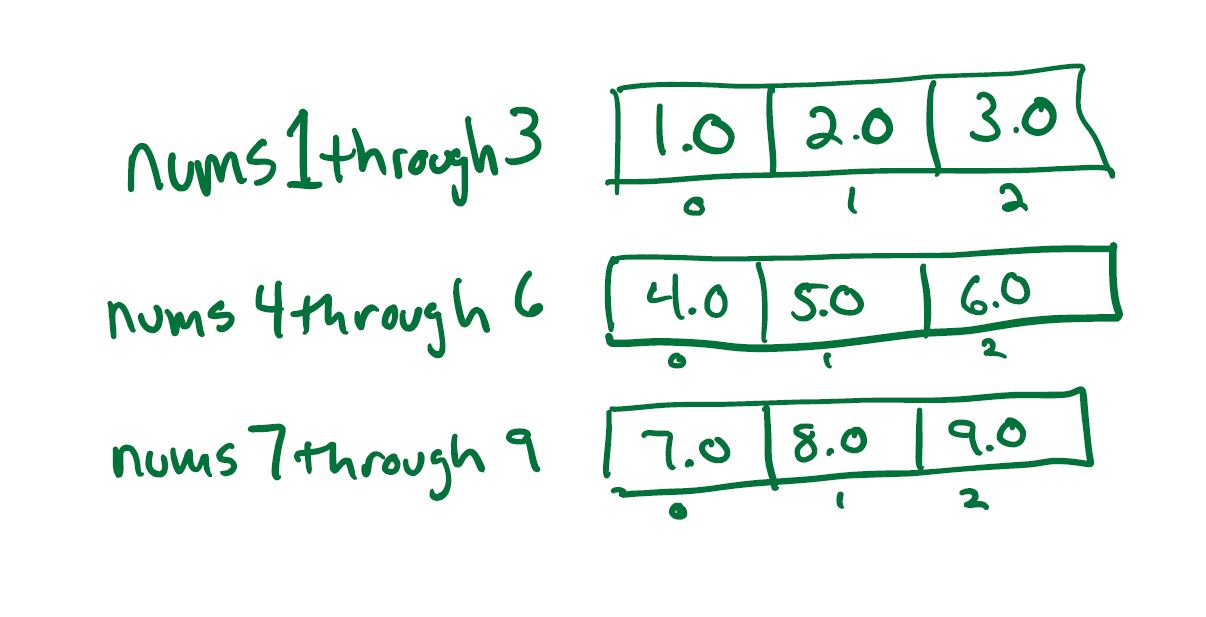 nums1through3 1.0 2.0 3.0
0 1 2
nums 4through 6 4.0 5.0 6.0
0 1 2
nums 7through 9 7.0 8.0 9.0
0 1 2